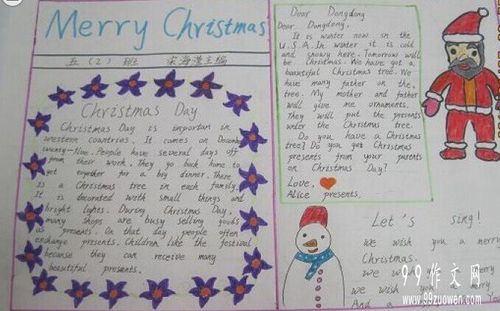 Merry Christmas
五（2）班 宋海滢主编
Christmas Day
Christmas Day is importan in
western countries. It comes on December
twenty-five. People have several days off
from their work. They go back home to
get together for a big dinner. There
is a Christmas tree in each family.
It is decorated with small things and
bright lights. During Christmas Day,
many shops are busy selling goods
as presents. On that day people often
exchange presents. Children like the festival
because they can receive many
beautiful presents.
Dear Dongdong
Dear Dongdong,
It is winter now in the
U.S.A. In winter it is cold
and snowy here. Tomorrow will
be Christmas. We have got a
beautiful Christmas tree. We
have many father on the
tree. My mother and father
will give me ornaments.
They will put the presents
under the Christmas tree.
Do you have a Christmas
tree? Do you get Christmas
presents from your parents
on Christmas Day?
Love,
Alice presents.
Let's sing!
We wish you a merry
Christmas.
We wish you
we wish you merry
And a
99作文网
www.99zuowen.com